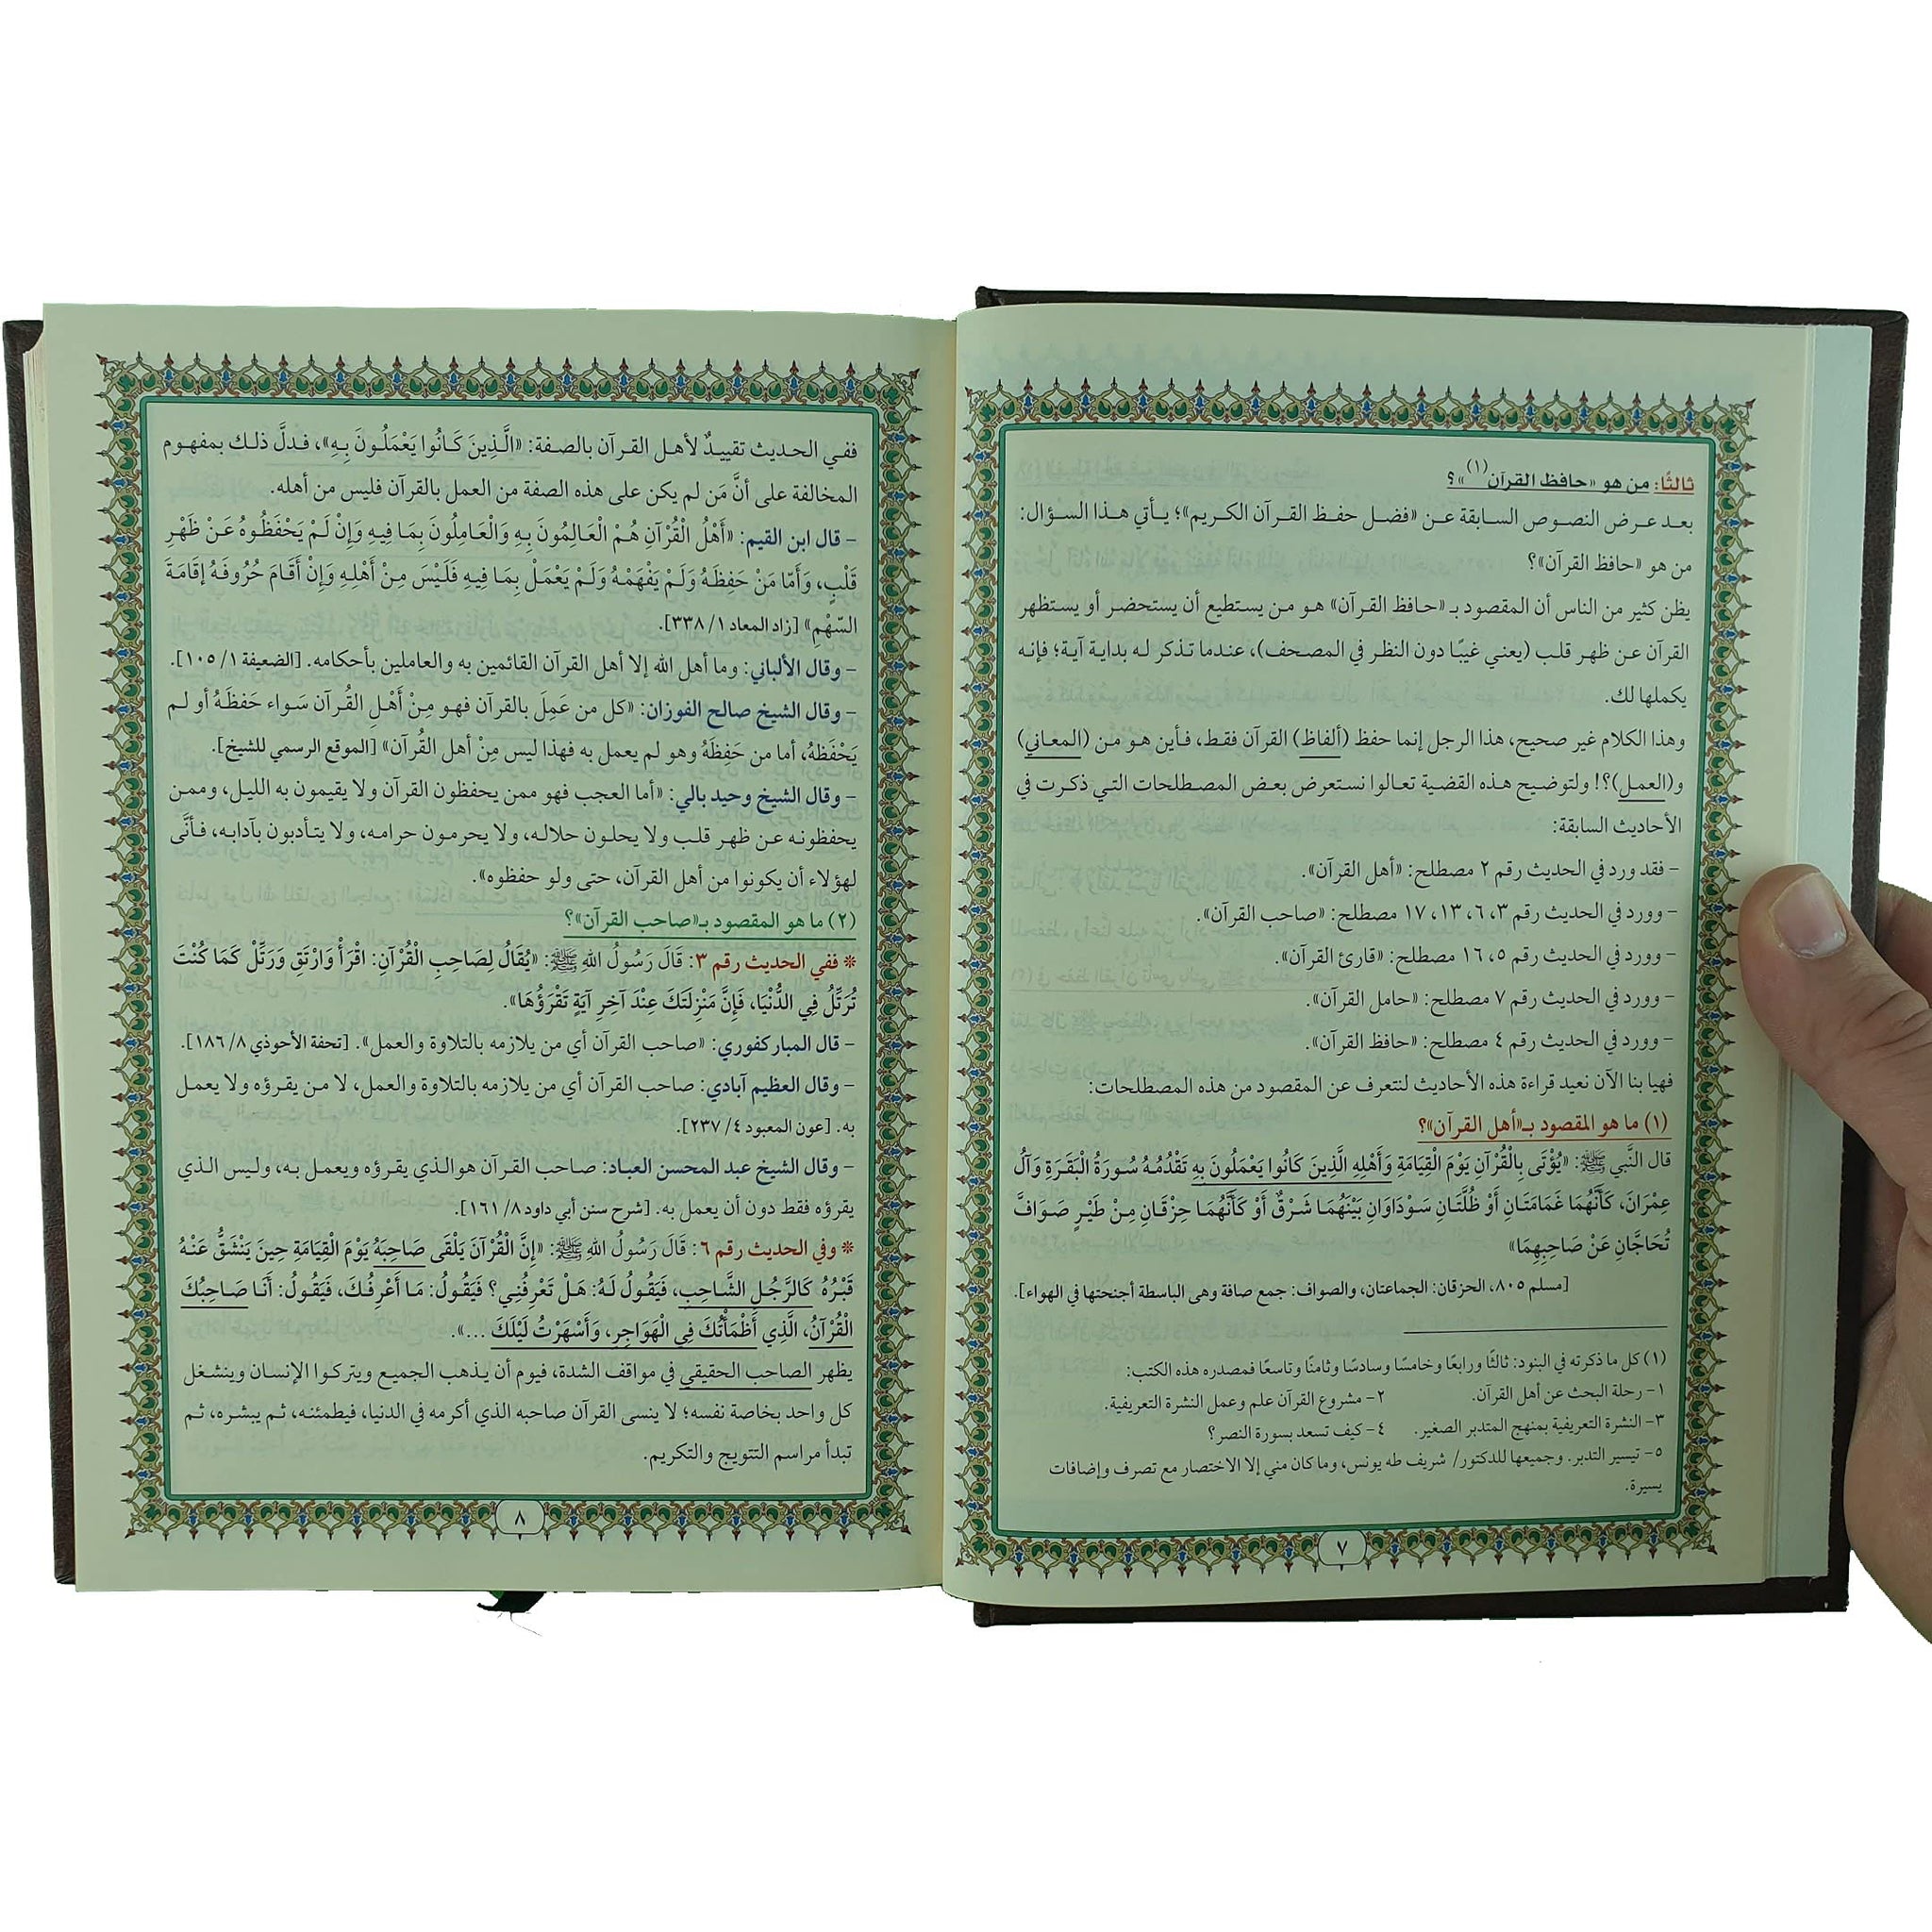 ثالثًا: من هو «حافظ القرآن(١)»؟
بعد عرض النصوص السابقة عن «فضل حفظ القرآن الكريم»؛ يأتي هذا السؤال:
من هو «حافظ القرآن»؟
يظن كثير من الناس أن المقصود بـ «حافظ القرآن» هو من يستطيع أن يستحضر أو يستظهر
القرآن عن ظهر قلب (يعني غيبًا دون النظر في المصحف)، عندما تذكر له بداية آية؛ فإنه
يكملها لك.
وهذا الكلام غير صحيح، هذا الرجل إنما حفظ (ألفاظ) القرآن فقط، فأين هو من (المعاني)
و(العمل)؟! ولتوضيح هذه القضية تعالوا نستعرض بعض المصطلحات التي ذكرت في
الأحاديث السابقة:
- فقد ورد في الحديث رقم ٢ مصطلح: «أهل القرآن».
- وورد في الحديث رقم ٣، ٦، ١٣، ١٧ مصطلح: «صاحب القرآن».
- وورد في الحديث رقم ٥، ١٦ مصطلح: «قارئ القرآن».
- وورد في الحديث رقم ٧ مصطلح: «حامل القرآن».
- وورد في الحديث رقم ٤ مصطلح: «حافظ القرآن».
فهيا بنا الآن نعيد قراءة هذه الأحاديث لنتعرف عن المقصود من هذه المصطلحات:
(١) ما هو المقصود بـ«أهل القرآن»؟
قال النَّبي ﷺ: «يُؤْتَى بِالْقُرْآنِ يَوْمَ الْقِيَامَةِ وَأَهْلِهِ الَّذِينَ كَانُوا يَعْمَلُونَ بِهِ تَقْدُمُهُ سُورَةُ الْبَقَرَةِ وَآلُ
عِمْرَانَ، كَأَنَّهُمَا غَمَامَتَانِ أَوْ ظُلَّتَانِ سَوْدَاوَانِ بَيْنَهُمَا شَرْقٌ أَوْ كَأَنَّهُمَا حِزْقَانِ مِنْ طَيْرٍ صَوَافَّ
تُحَاجَّانِ عَنْ صَاحِبِهِمَا»
[مسلم ٨٠٥، الحزقان: الجماعتان، والصواف: جمع صافة وهى الباسطة أجنحتها في الهواء].
(١) كل ما ذكرته في البنود: ثالثًا ورابعًا وخامسًا وسادسًا وثامنًا وتاسعًا فمصدره هذه الكتب:
١- رحلة البحث عن أهل القرآن. ٢- مشروع القرآن علم وعمل النشرة التعريفية.
٣- النشرة التعريفية بمنهج المتدبر الصغير. ٤- كيف تسعد بسورة النصر؟
٥- تيسير التدبر. وجميعها للدكتور/ شريف طه يونس، وما كان مني إلا الاختصار مع تصرف وإضافات
يسيرة.
٧
ففي الحديث تقييدٌ لأهل القرآن بالصفة: «الَّذِينَ كَانُوا يَعْمَلُونَ بِهِ»، فدلَّ ذلك بمفهوم
المخالفة على أنَّ مَن لم يكن على هذه الصفة من العمل بالقرآن فليس من أهله.
- قال ابن القيم: «أَهْلُ الْقُرْآنِ هُمْ الْعَالِمُونَ بِهِ وَالْعَامِلُونَ بِمَا فِيهِ وَإِنْ لَمْ يَحْفَظُوهُ عَنْ ظَهْرِ
قَلْبٍ، وَأَمَّا مَنْ حَفِظَهُ وَلَمْ يَفْهَمْهُ وَلَمْ يَعْمَلْ بِمَا فِيهِ فَلَيْسَ مِنْ أَهْلِهِ وَإِنْ أَقَامَ حُرُوفَهُ إقَامَةَ
السّهْمِ» [زاد المعاد ١/ ٣٣٨].
- وقال الألباني: وما أهل الله إلا أهل القرآن القائمين به والعاملين بأحكامه. [الضعيفة ١/ ١٠٥].
- وقال الشيخ صالح الفوزان: «كل من عَمِلَ بالقرآن فهو مِنْ أَهْلِ القُرآن سَواء حَفظَهُ أو لم
يَحْفَظهُ، أما من حَفِظَهُ وهو لم يعمل به فهذا ليس مِنْ أهل القُرآن» [الموقع الرسمي للشيخ].
- وقال الشيخ وحيد بالي: «أما العجب فهو ممن يحفظون القرآن ولا يقيمون به الليل، وممن
يحفظونه عن ظهر قلب ولا يحلون حلاله، ولا يحرمون حرامه، ولا يتأدبون بآدابه، فأنَّى
لهؤلاء أن يكونوا من أهل القرآن، حتى ولو حفظوه».
(٢) ما هو المقصود بـ«صاحب القرآن»؟
* ففي الحديث رقم ٣: قَالَ رَسُولُ اللهِ ﷺ: «يُقَالُ لِصَاحِبِ الْقُرْآنِ: اقْرَأْ وَارْتَقِ وَرَتِّلْ كَمَا كُنْتَ
تُرَتِّلُ فِي الدُّنْيَا، فَإِنَّ مَنْزِلَتَكَ عِنْدَ آخِرِ آيَةٍ تَقْرَؤُهَا».
- قال المباركفوري: «صاحب القرآن أي من يلازمه بالتلاوة والعمل». [تحفة الأحوذي ٨/ ١٨٦].
- وقال العظيم آبادي: صاحب القرآن أي من يلازمه بالتلاوة والعمل، لا من يقرؤه ولا يعمل
به. [عون المعبود ٤/ ٢٣٧].
- وقال الشيخ عبد المحسن العباد: صاحب القرآن هوالذي يقرؤه ويعمل به، وليس الذي
يقرؤه فقط دون أن يعمل به. [شرح سنن أبي داود ٨/ ١٦١].
* وفي الحديث رقم ٦: قَالَ رَسُولُ اللهِ ﷺ: «إِنَّ الْقُرْآنَ يَلْقَى صَاحِبَهُ يَوْمَ الْقِيَامَةِ حِينَ يَنْشَقُّ عَنْهُ
قَبْرُهُ كَالرَّجُلِ الشَّاحِبِ، فَيَقُولُ لَهُ: هَلْ تَعْرِفُنِي؟ فَيَقُولُ: مَا أَعْرِفُكَ، فَيَقُولُ: أَنَا صَاحِبُكَ
الْقُرْآنُ، الَّذِي أَظْمَأْتُكَ فِي الْهَوَاجِرِ، وَأَسْهَرْتُ لَيْلَكَ ...».
يظهر الصاحب الحقيقي في مواقف الشدة، فيوم أن يذهب الجميع ويتركوا الإنسان وينشغل
كل واحد بخاصة نفسه؛ لا ينسى القرآن صاحبه الذي أكرمه في الدنيا، فيطمئنه، ثم يبشره، ثم
تبدأ مراسم التتويج والتكريم.
٨